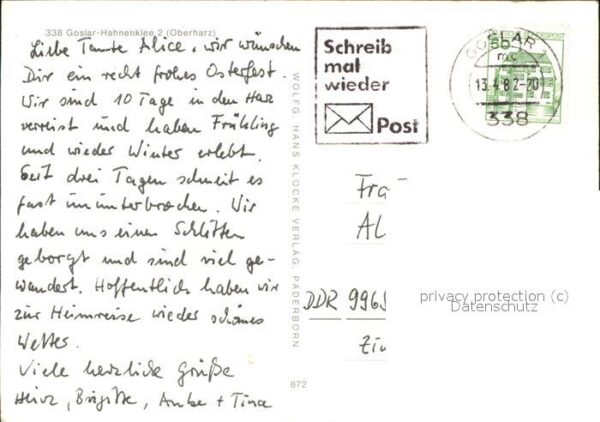 338 Goslar-Hahnenklee 2 (Oberharz)
Liebe Tante Alice, wir wünschen
Dir ein recht frohes Osterfest.
Wir sind 10 Tage in den Harz
verreist und haben Frühling
und wieder Winter erlebt.
Seit drei Tagen schneit es
fast ununterbrochen. Wir
haben uns einen Schlitten
geborgt und sind viel ge-
wandert. Hoffentlich haben wir
zur Heimreise wieder schönes
Wetter.
Viele herzliche Grüße
Heinz, Brigitte, Anke + Tina
WOLFG. HANS KLOCKE VERLAG, PADERBORN
872
Schreib
mal
wieder
Post
GOSLAR 1
mc
13.4.82-20
338
Fra
AL
DDR 9965
privacy protection (c)
Datenschutz